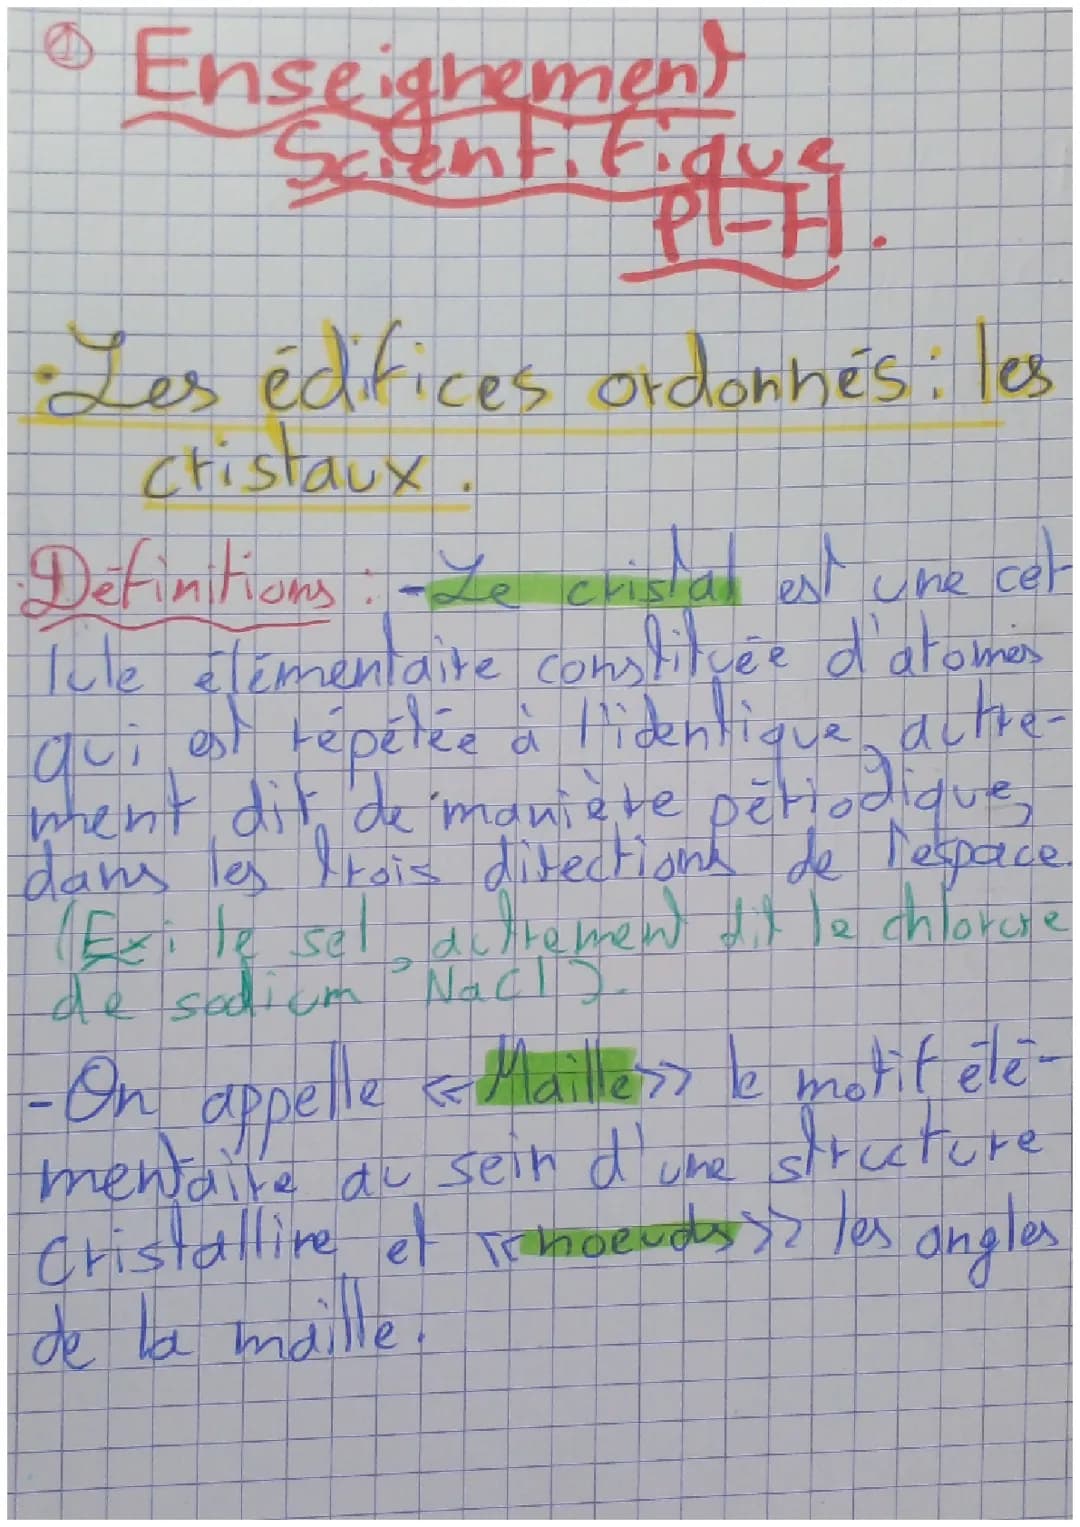 ① Enseignement
Scientifique
Pl-H.
• Les édifices ordonnés : les
cristaux.
• Définitions : - Le cristal est une cel
lule élémentaire constituée d'atomes
qui est répétée à l'identique, autre-
ment dit, de manière périodique,
dans les trois directions de l'espace.
(Ex: le sel, autrement dit le chlorure
de sodium NaCl).
- On appelle «Maille» le motif élé-
mentaire au sein d'une structure
cristalline et «noeuds» les angles
de la maille.